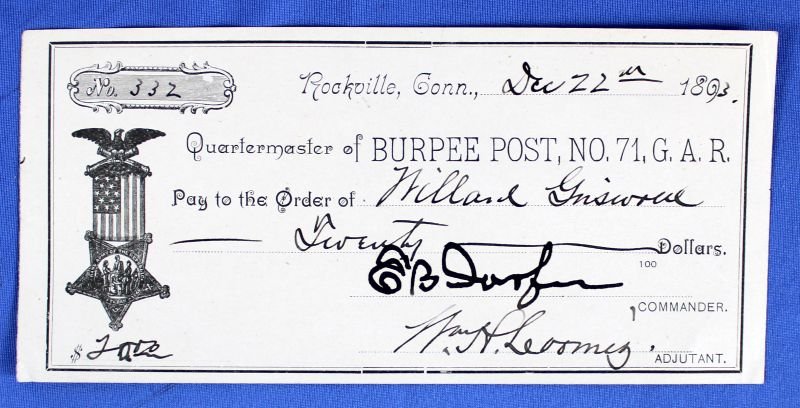 No. 332
Rockville, Conn., Dec 22nd 1893.
Quartermaster of BURPEE POST, NO. 71, G. A. R.
Pay to the Order of Willard Griswold
Twenty Dollars.
100
E B
COMMANDER.
Wm. H. Loomis.
$ 20.00
ADJUTANT.